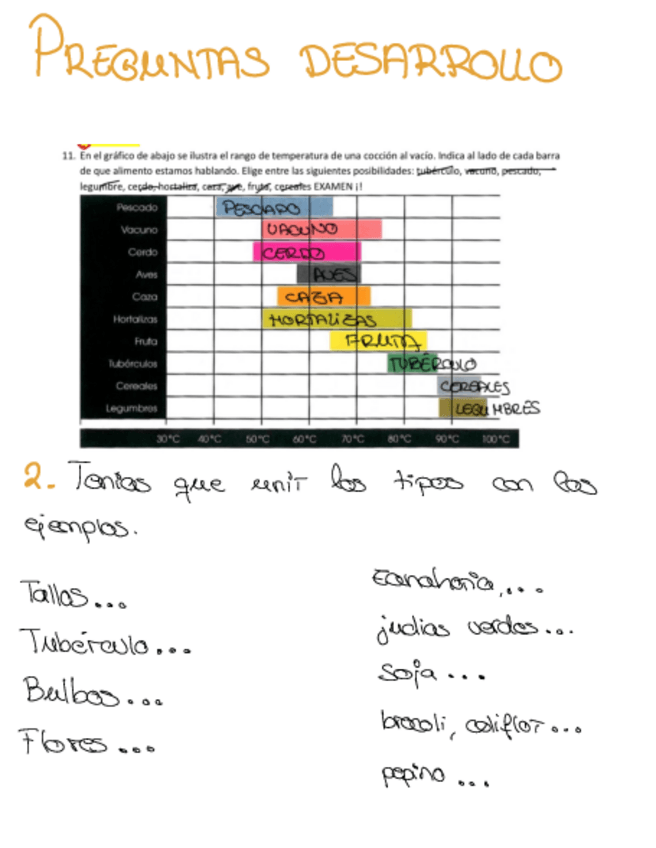 PREGUNTAS DESARROLLO
11. En el gráfico de abajo se ilustra el rango de temperatura de una cocción al vacío. Indica al lado de cada barra
de que alimento estamos hablando. Elige entre las siguientes posibilidades: tubérculo, vacuno, pescado,
legumbre, cerdo, hostaliza, caza, ave, fruta, cereales EXAMEN ¡!
Pescado PESCADO
Vacuno VACUNO
Cerdo CERDO
Aves AVES
Caza CAZA
Hortalizas HORTALIZAS
Fruta FRUTA
Tubérculos TUBÉRCULO
Cereales CEREALES
Legumbres LEGUMBRES
30°C 40°C 50°C 60°C 70°C 80°C 90°C 100°C
2. Tenías que unir los tipos con los
ejemplos.
Tallos...
Tubérculo...
Bulbos...
Flores...
Zanahoria,...
judias verdes...
soja...
brocoli, coliflor...
pepino...